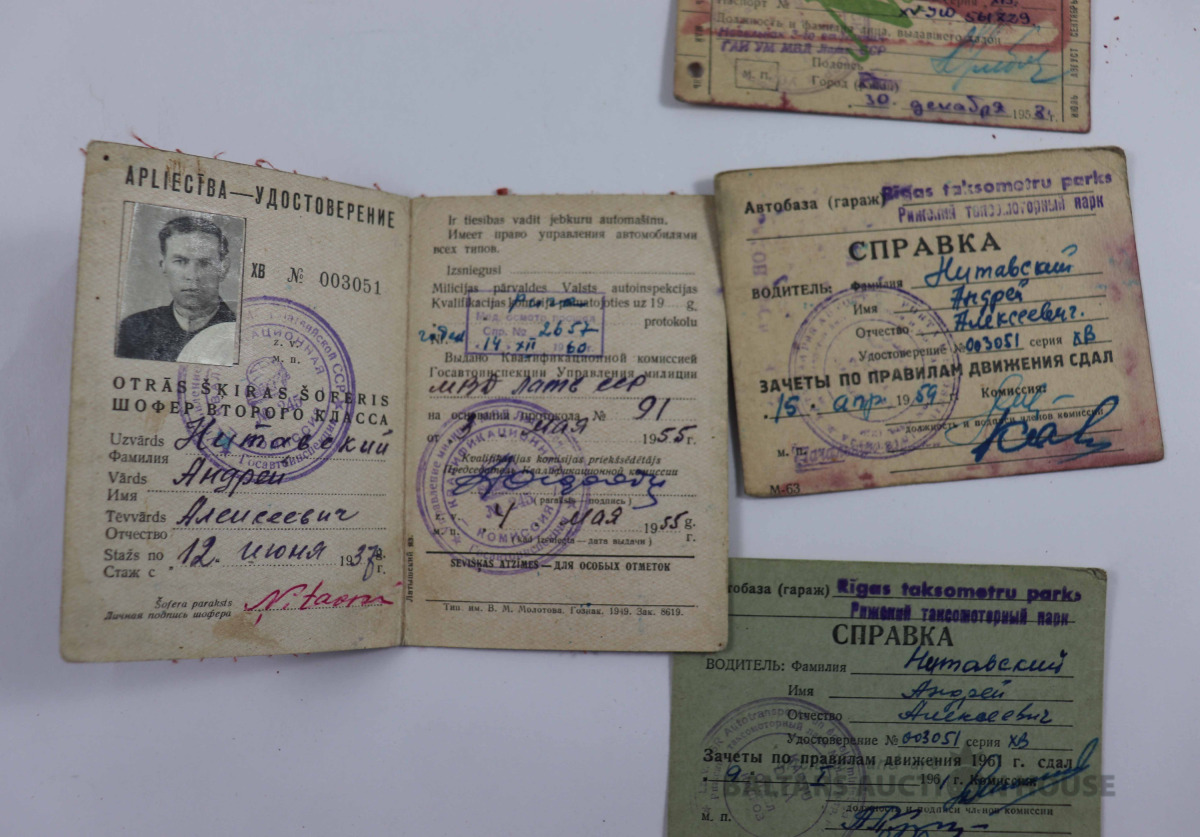 Паспорт № серия ХВ,
№УЮ 561829.
Должность и фамилия лица, выдавшего талон
ГАИ УМ МВД Латв ССР
Подпись
М. П.
Город (район)
30. декабря 1958 г.
APLIECĪBA—УДОСТОВЕРЕНИЕ
ХВ № 003051
Z. V.
М. П.
OTRĀS ŠĶIRAS ŠOFERIS
ШОФЕР ВТОРОГО КЛАССА
Uzvārds
Фамилия Нитавский
Vārds
Имя Андрей
Tēvvārds
Отчество Алексеевич
Stažs no
Стаж с 12. июня 1937 g. г.
Šofera paraksts
Личная подпись шофера
Ir tiesības vadīt jebkuru automašīnu.
Имеет право управления автомобилями
всех типов.
Izsniegusi
Milicijas pārvaldes Valsts autoinspekcijas
Kvalifikācijas komisija pamatojoties uz 19 g.
protokolu
Мед. осмотр прошел
Спр. № 2657
годен 14. XII 1960 г.
Выдано Квалификационной комиссией
Госавтоинспекции Управления милиции
МВД Латв ССР
на основании протокола № 91
от 3 мая 1955 г.
Kvalifikācijas komisijas priekšsēdētājs
Председатель Квалификационной комиссии
(paraksts — подпись)
4 мая 1955 g. г.
(kad izsniegta — дата выдачи)
SEVIŠĶAS ATZĪMES — ДЛЯ ОСОБЫХ ОТМЕТОК
Тип. им. В. М. Молотова. Гознак. 1949. Зак. 8619.
Латышский яз.
КВАЛИФИКАЦИОННАЯ КОМИССИЯ
Госавтоинспекции
№ 245
Автобаза (гараж) Rīgas taksometru parks
Рижский таксомоторный парк
СПРАВКА
ВОДИТЕЛЬ: Фамилия Нитавский
Имя Андрей
Отчество Алексеевич.
Удостоверение № 003051 серия ХВ
ЗАЧЕТЫ ПО ПРАВИЛАМ ДВИЖЕНИЯ СДАЛ
15. апр 1959 г. Комиссия:
должность и подписи членов комиссии
М. П.
М-63
Автобаза (гараж) Rīgas taksometru parks
Рижский таксомоторный парк
СПРАВКА
ВОДИТЕЛЬ: Фамилия Нитавский
Имя Андрей
Отчество Алексеевич
Удостоверение № 003051 серия ХВ
Зачеты по правилам движения 1961 г. сдал
9. I 1961 г. Комиссия
должность и подписи членов комиссии
М. П.
BALTARS AUCTION HOUSE